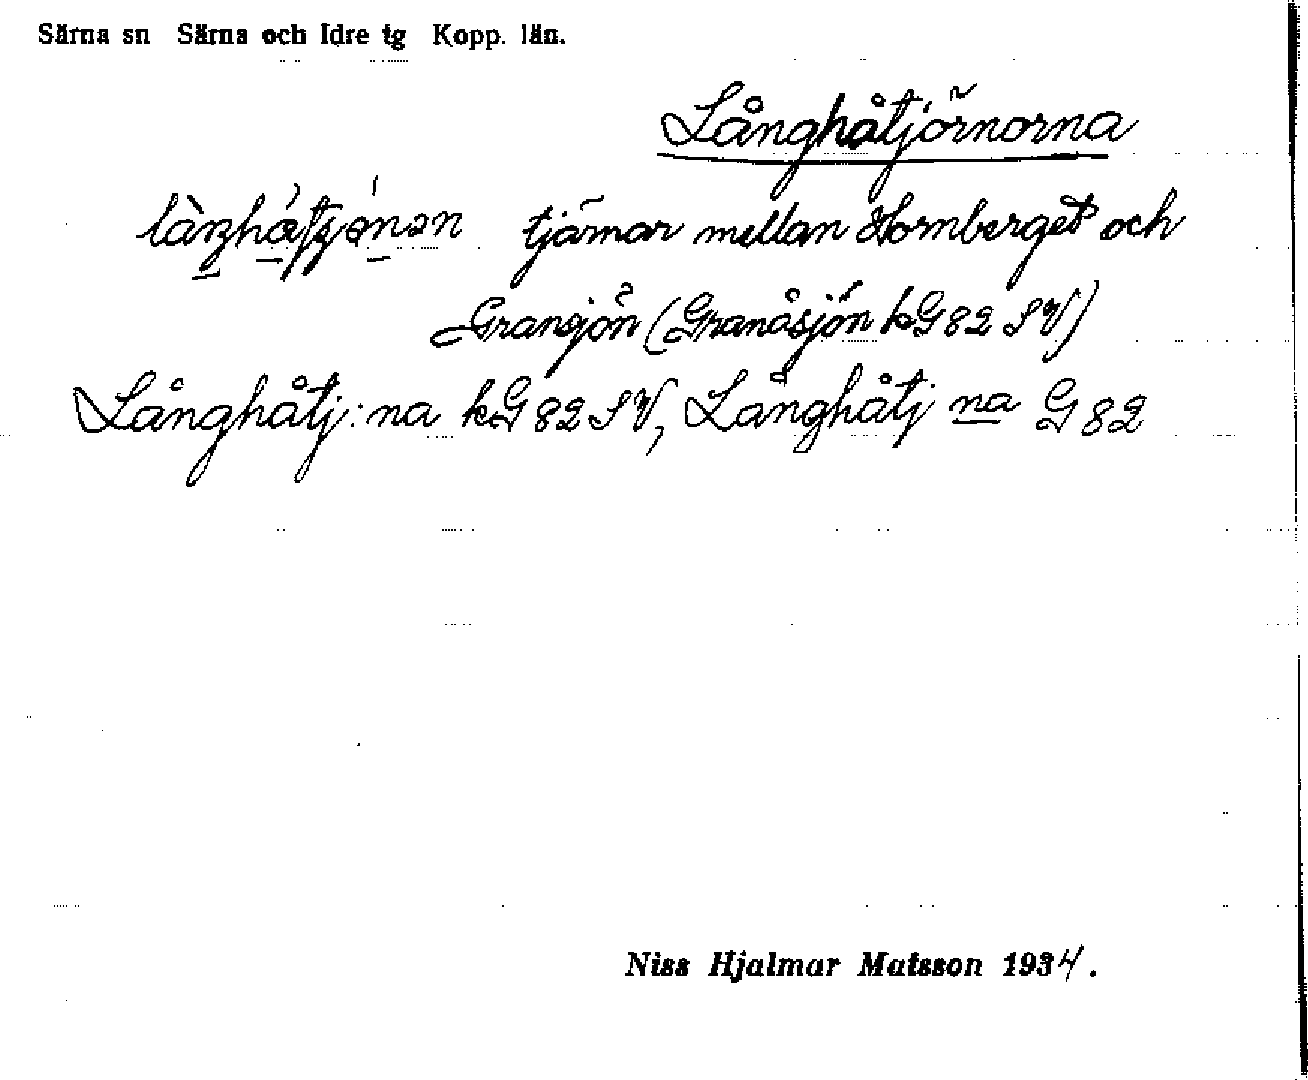 Särna sn Särna och Idre tg Kopp. län.
Långhåtjörnorna
tjärnar mellan Hornberget och
Gransjön (Granåsjön kG82 SV)
Långhåtj:na kG82SV, Långhåtj na G 82
Niss Hjalmar Matsson 1934.